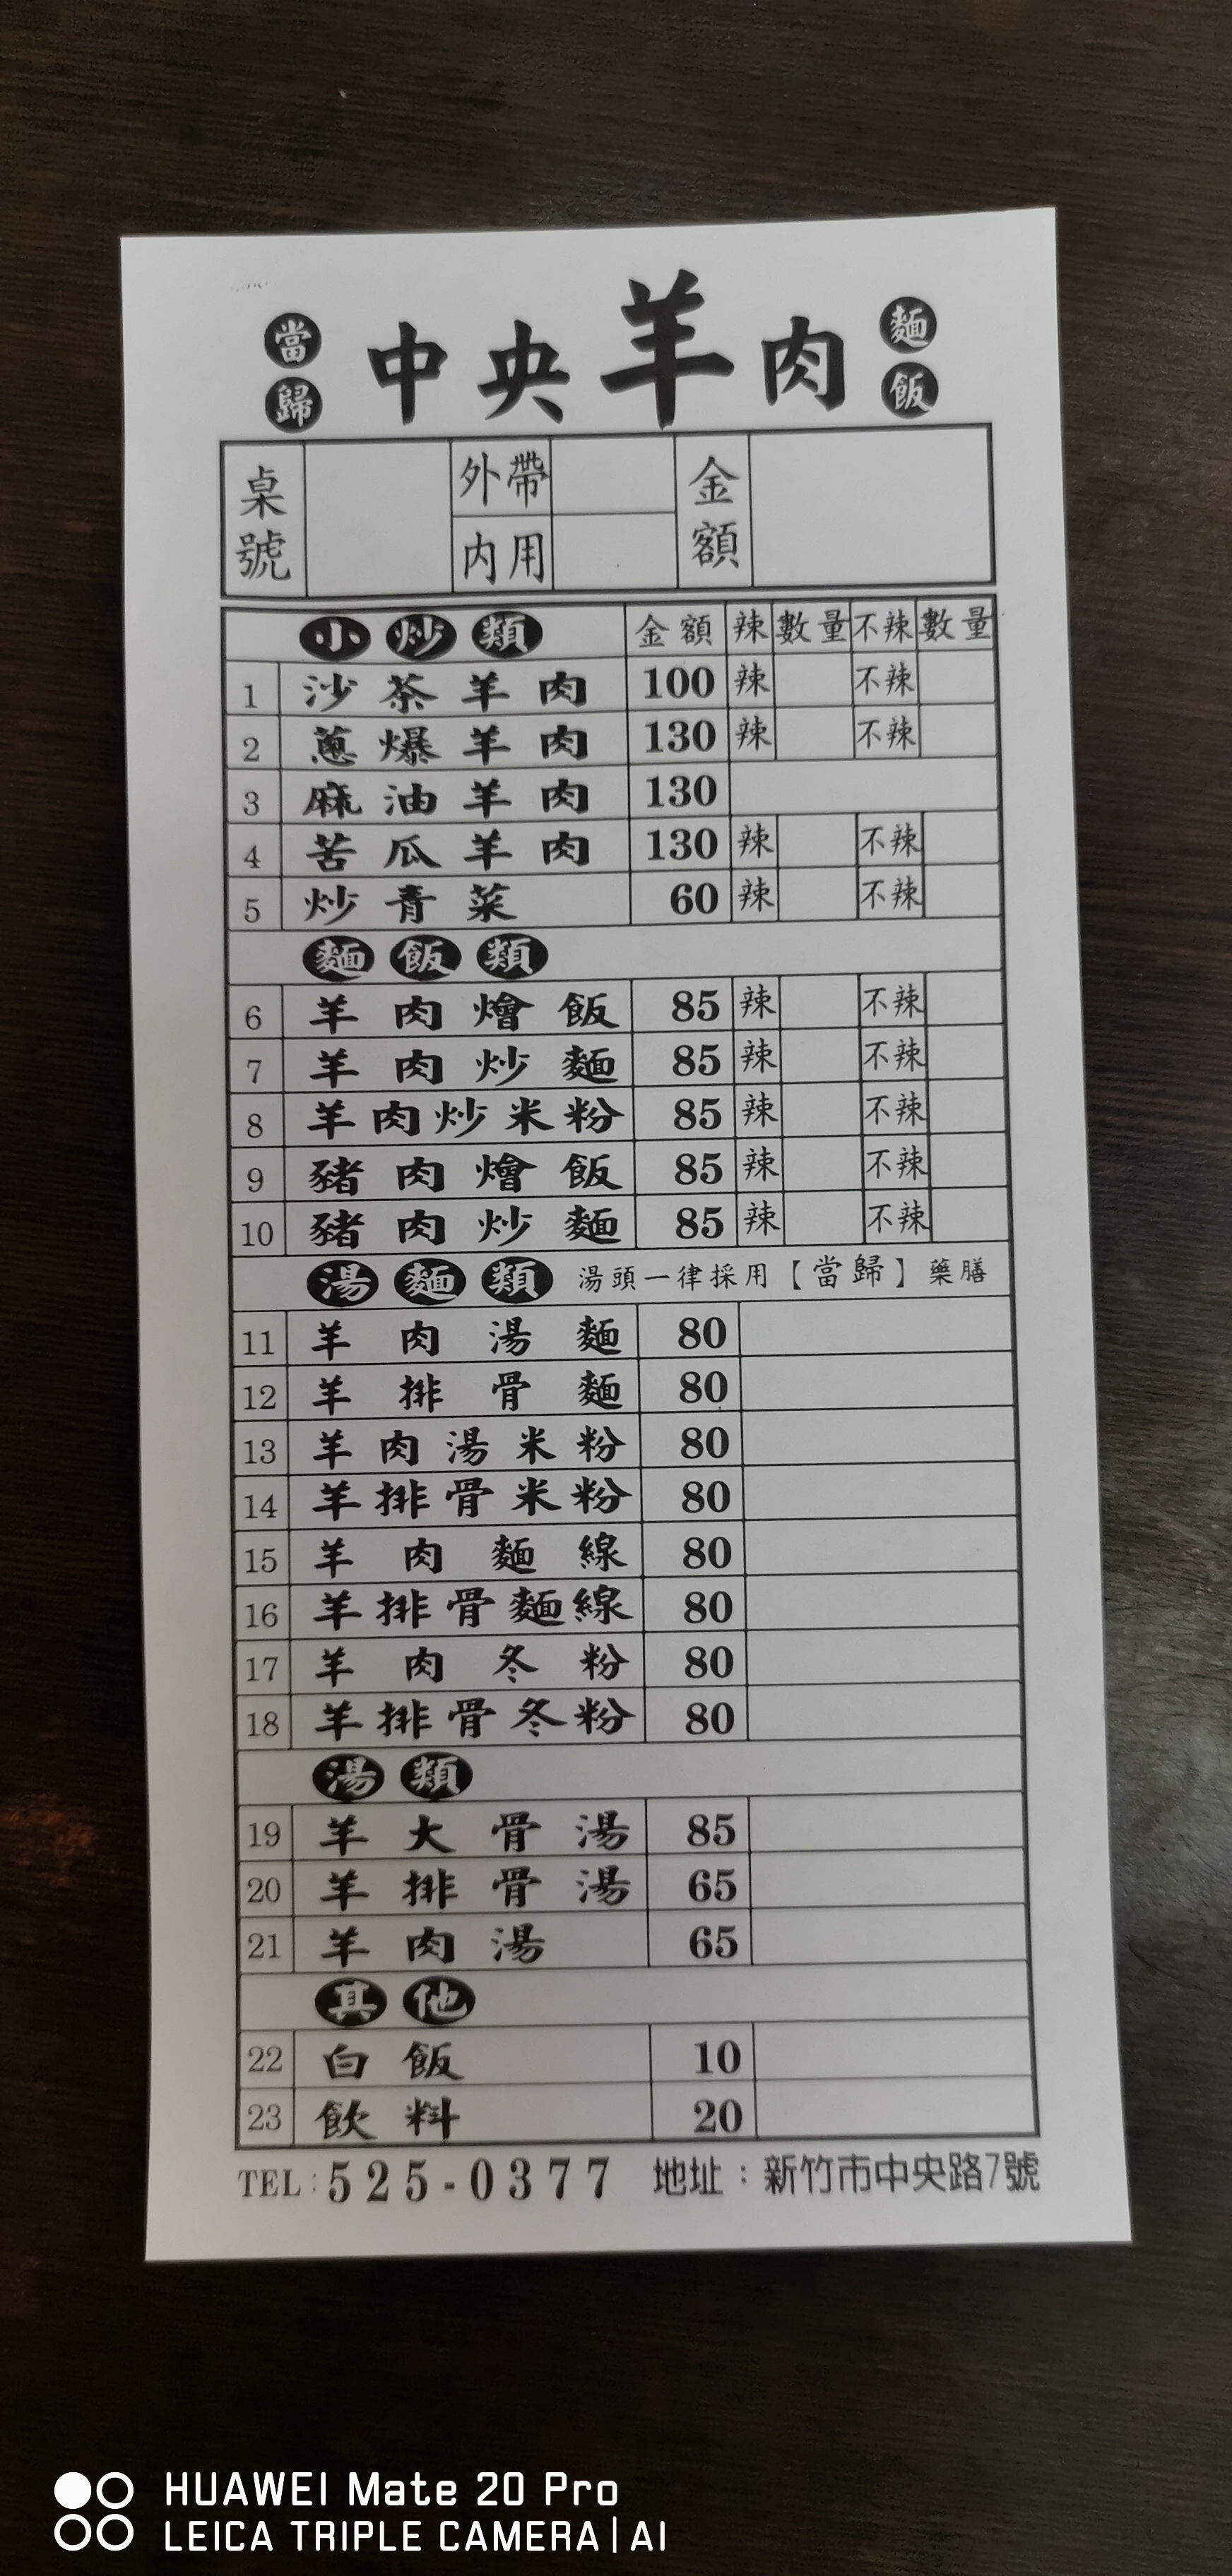 當歸 中央羊肉 麵飯
桌號 外帶 金額
內用
小炒類 金額 辣 數量 不辣 數量
1 沙茶羊肉 100 辣 不辣
2 蔥爆羊肉 130 辣 不辣
3 麻油羊肉 130
4 苦瓜羊肉 130 辣 不辣
5 炒青菜 60 辣 不辣
麵飯類
6 羊肉燴飯 85 辣 不辣
7 羊肉炒麵 85 辣 不辣
8 羊肉炒米粉 85 辣 不辣
9 豬肉燴飯 85 辣 不辣
10 豬肉炒麵 85 辣 不辣
湯麵類 湯頭一律採用【當歸】藥膳
11 羊肉湯麵 80
12 羊排骨麵 80
13 羊肉湯米粉 80
14 羊排骨米粉 80
15 羊肉麵線 80
16 羊排骨麵線 80
17 羊肉冬粉 80
18 羊排骨冬粉 80
湯類
19 羊大骨湯 85
20 羊排骨湯 65
21 羊肉湯 65
其他
22 白飯 10
23 飲料 20
TEL:525-0377 地址：新竹市中央路7號
HUAWEI Mate 20 Pro
LEICA TRIPLE CAMERA | AI